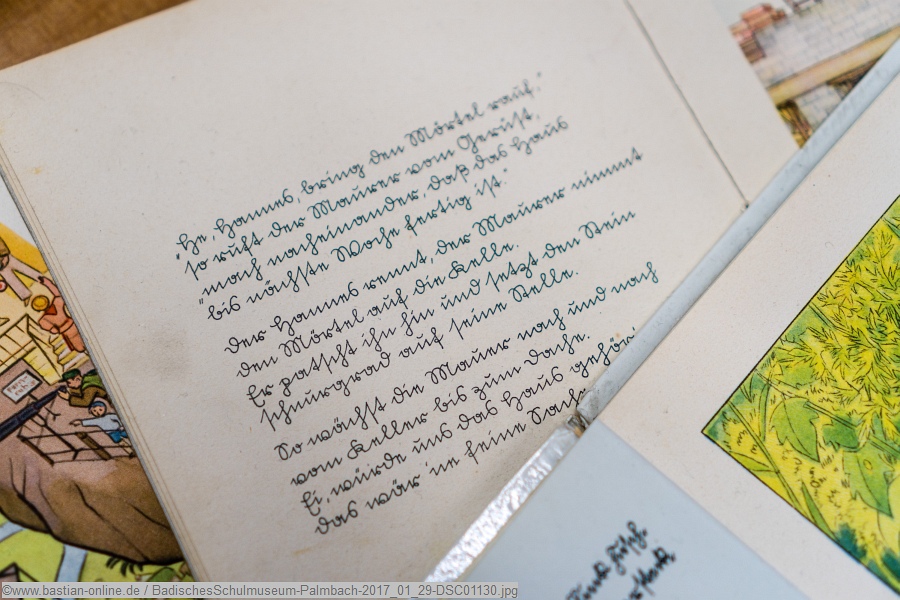 „He, Hannes, bring den Mörtel rauf,“
so ruft der Maurer vom Gerüst,
„mach nacheinander, daß das Haus
bis nächste Woche fertig ist.“
Der Hannes rennt, der Maurer nimmt
den Mörtel auf die Kelle.
Er patscht ihn hin und setzt den Stein
schnurgrad auf seine Stelle.
So wächst die Mauer nach und nach
vom Keller bis zum Dache.
Ei, würde uns das Haus gehör
das wär 'ne feine Sache
©www.bastian-online.de / BadischesSchulmuseum-Palmbach-2017_01_29-DSC01130.jpg